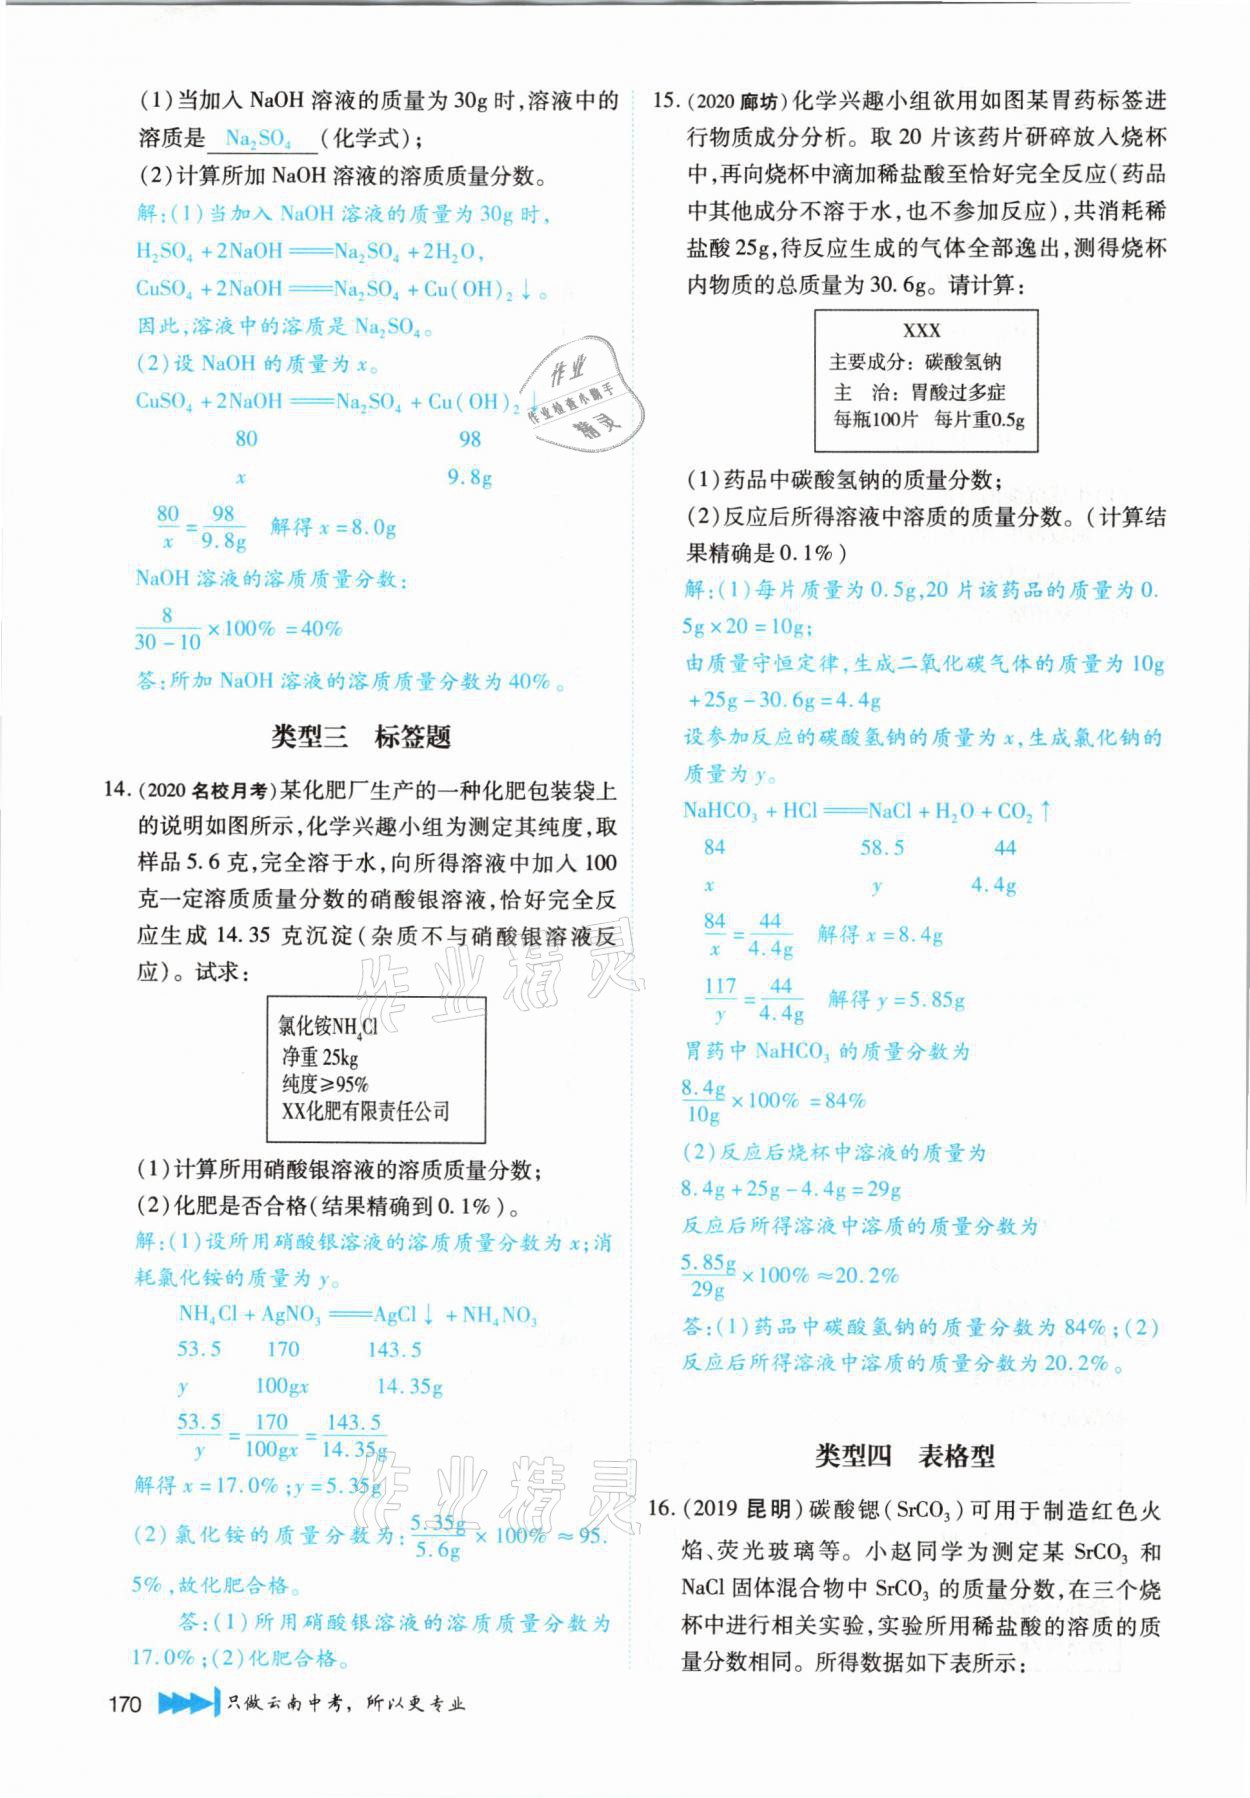 (1)当加入 NaOH 溶液的质量为30g时,溶液中的
溶质是 Na₂SO₄ (化学式);
(2)计算所加 NaOH 溶液的溶质质量分数。
解:(1)当加入 NaOH 溶液的质量为30g时,
H₂SO₄+2NaOH══Na₂SO₄+2H₂O,
CuSO₄+2NaOH══Na₂SO₄+Cu(OH)₂↓。
因此,溶液中的溶质是 Na₂SO₄。
(2)设 NaOH 的质量为 x。
CuSO₄+2NaOH══Na₂SO₄+Cu(OH)₂↓
80 98
x 9.8g
80/x=98/9.8g 解得 x=8.0g
NaOH 溶液的溶质质量分数:
8/(30-10)×100%=40%
答:所加 NaOH 溶液的溶质质量分数为40%。
类型三 标签题
14.(2020 名校月考)某化肥厂生产的一种化肥包装袋上
的说明如图所示,化学兴趣小组为测定其纯度,取
样品5.6克,完全溶于水,向所得溶液中加入100
克一定溶质质量分数的硝酸银溶液,恰好完全反
应生成14.35克沉淀(杂质不与硝酸银溶液反
应)。试求:
氯化铵NH₄Cl
净重25kg
纯度≥95%
XX化肥有限责任公司
(1)计算所用硝酸银溶液的溶质质量分数;
(2)化肥是否合格(结果精确到0.1%)。
解:(1)设所用硝酸银溶液的溶质质量分数为x;消
耗氯化铵的质量为y。
NH₄Cl+AgNO₃══AgCl↓+NH₄NO₃
53.5 170 143.5
y 100gx 14.35g
53.5/y=170/100gx=143.5/14.35g
解得x=17.0%;y=5.35g
(2)氯化铵的质量分数为:5.35g/5.6g×100%≈95.
5%,故化肥合格。
答:(1)所用硝酸银溶液的溶质质量分数为
17.0%;(2)化肥合格。
170 只做云南中考,所以更专业
15.(2020 廊坊)化学兴趣小组欲用如图某胃药标签进
行物质成分分析。取20片该药片研碎放入烧杯
中,再向烧杯中滴加稀盐酸至恰好完全反应(药品
中其他成分不溶于水,也不参加反应),共消耗稀
盐酸25g,待反应生成的气体全部逸出,测得烧杯
内物质的总质量为30.6g。请计算:
XXX
主要成分:碳酸氢钠
主 治:胃酸过多症
每瓶100片 每片重0.5g
(1)药品中碳酸氢钠的质量分数;
(2)反应后所得溶液中溶质的质量分数。(计算结
果精确是0.1%)
解:(1)每片质量为0.5g,20片该药品的质量为0.
5g×20=10g;
由质量守恒定律,生成二氧化碳气体的质量为10g
+25g-30.6g=4.4g
设参加反应的碳酸氢钠的质量为x,生成氯化钠的
质量为y。
NaHCO₃+HCl══NaCl+H₂O+CO₂↑
84 58.5 44
x y 4.4g
84/x=44/4.4g 解得x=8.4g
117/y=44/4.4g 解得y=5.85g
胃药中NaHCO₃的质量分数为
8.4g/10g×100%=84%
(2)反应后烧杯中溶液的质量为
8.4g+25g-4.4g=29g
反应后所得溶液中溶质的质量分数为
5.85g/29g×100%≈20.2%
答:(1)药品中碳酸氢钠的质量分数为84%;(2)
反应后所得溶液中溶质的质量分数为20.2%。
类型四 表格型
16.(2019 昆明)碳酸锶(SrCO₃)可用于制造红色火
焰、荧光玻璃等。小赵同学为测定某 SrCO₃ 和
NaCl固体混合物中SrCO₃的质量分数,在三个烧
杯中进行相关实验,实验所用稀盐酸的溶质的质
量分数相同。所得数据如下表所示:
作业
作业检查小助手
精灵
作业精灵
作业精灵